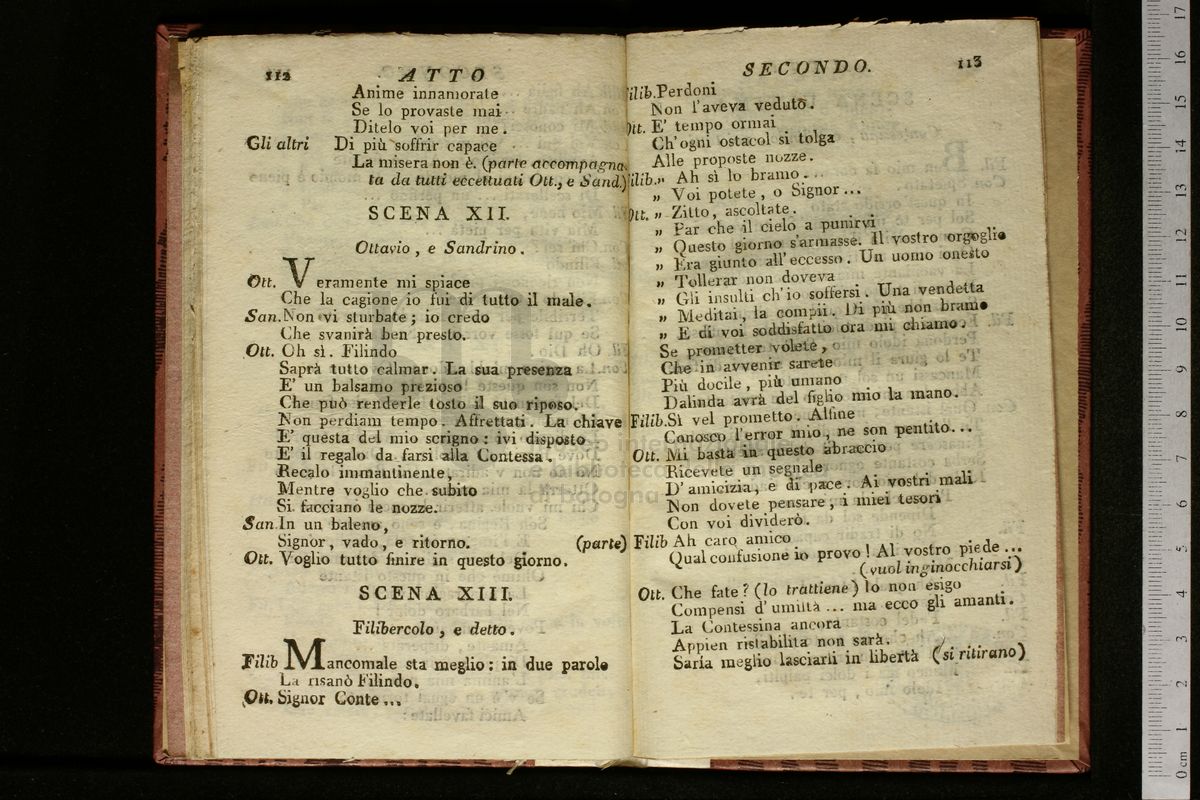 112
ATTO
Anime innamorate
Se lo provaste mai
Ditelo voi per me.
Gli altri Di più soffrir capace
La misera non è. (parte accompagna-
ta da tutti eccettuati Ott., e Sand.)
SCENA XII.
Ottavio, e Sandrino.
Ott. Veramente mi spiace
Che la cagione io fui di tutto il male.
San. Non vi sturbate; io credo
Che svanirà ben presto.
Ott. Oh sì. Filindo
Saprà tutto calmar. La sua presenza
E' un balsamo prezioso
Che può renderle tosto il suo riposo.
Non perdiam tempo. Affrettati. La chiave
E' questa del mio scrigno: ivi disposto
E' il regalo da farsi alla Contessa.
Recalo immantinente,
Mentre voglio che subito
Si facciano le nozze.
San. In un baleno,
Signor, vado, e ritorno. (parte)
Ott. Voglio tutto finire in questo giorno.
SCENA XIII.
Filibercolo, e detto.
Filib Mancomale sta meglio: in due parole
La risanò Filindo.
Ott. Signor Conte...
SECONDO.
113
Filib. Perdoni
Non l'aveva veduto.
Ott. E' tempo ormai
Ch'ogni ostacol si tolga
Alle proposte nozze.
Filib. „ Ah sì lo bramo...
„ Voi potete, o Signor...
Ott. „ Zitto, ascoltate.
„ Par che il cielo a punirvi
„ Questo giorno s'armasse. Il vostro orgoglio
„ Era giunto all'eccesso. Un uomo onesto
„ Tollerar non doveva
„ Gli insulti ch'io soffersi. Una vendetta
„ Meditai, la compii. Di più non bramo
„ E di voi soddisfatto ora mi chiamo.
Se prometter volete,
Che in avvenir sarete
Più docile, più umano
Dalinda avrà del figlio mio la mano.
Filib. Sì vel prometto. Alfine
Conosco l'error mio, ne son pentito...
Ott. Mi basta in questo abbraccio
Ricevete un segnale
D'amicizia, e di pace. Ai vostri mali
Non dovete pensare, i miei tesori
Con voi dividerò.
Filib Ah caro amico
Qual confusione io provo! Al vostro piede...
(vuol inginocchiarsi)
Ott. Che fate? (lo trattiene) Io non esigo
Compensi d'umiltà... ma ecco gli amanti.
La Contessina ancora
Appien ristabilita non sarà.
Saria meglio lasciarli in libertà (si ritirano)